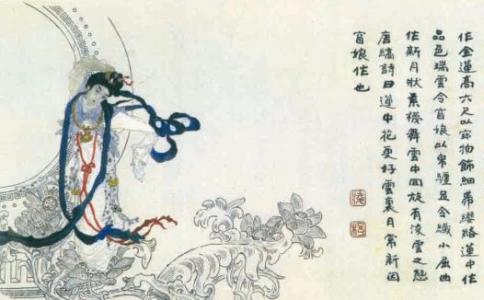 作金蓮高六尺以宝物飾細帶纓絡蓮中作
品色瑞雲令窅娘以帛纏足令纖小屈曲
作新月狀素襪舞雲中回旋有凌雲之態
唐鎬詩曰蓮中花更好雲裏月常新因
窅娘作也